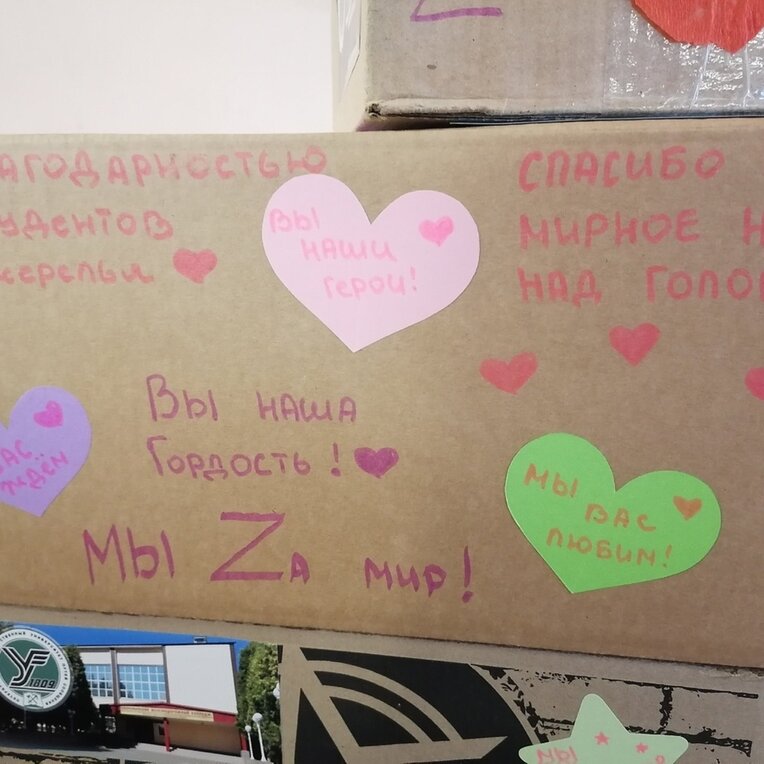 Z
агодарностью
удентов
жерельи
ВЫ
НАШИ
герои!
СПАСИБО
МИРНОЕ Н
НАД ГОЛО
ВАС
ждём
Вы наша
Гордость!
МЫ Zа мир!
МЫ
ВАС
ЛЮБИМ!
1809
МЫ